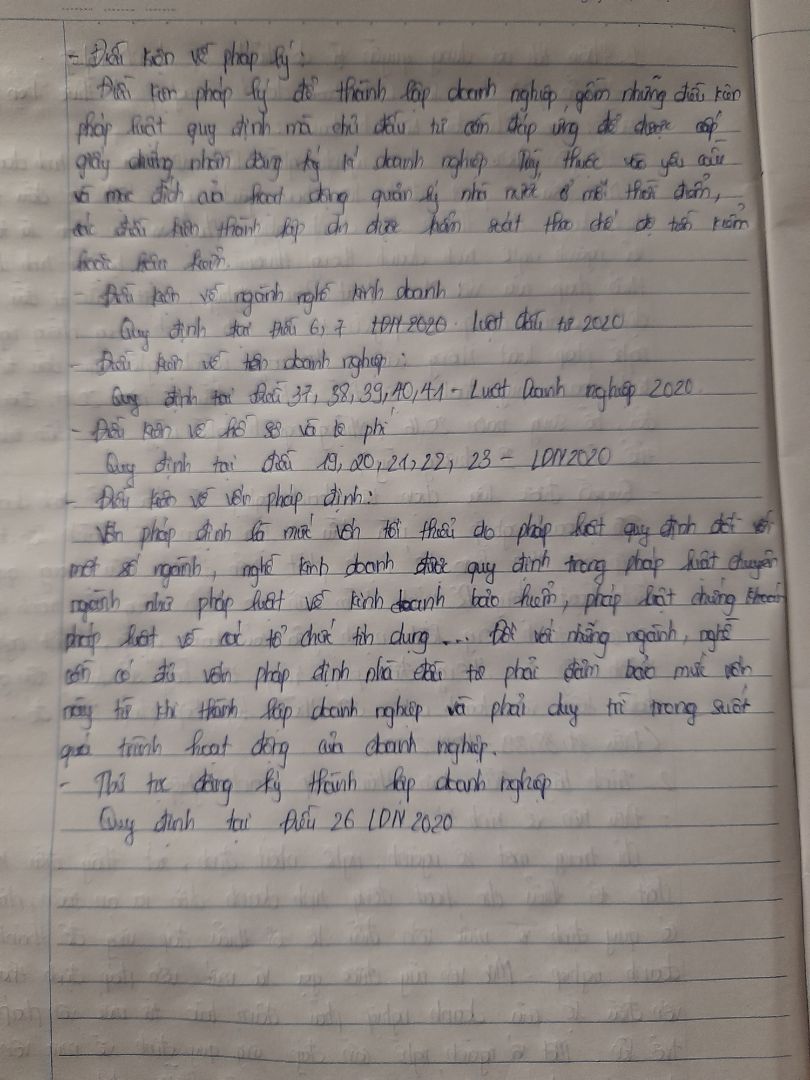 - Điều kiện về pháp lý :
Điều kiện pháp lý để thành lập doanh nghiệp, gồm những điều kiện
pháp luật quy định mà chủ đầu tư cần đáp ứng để được cấp
giấy chứng nhận đăng ký doanh nghiệp. Tùy thuộc vào yêu cầu
và mục đích của hoạt động quản lý nhà nước ở mỗi thời điểm,
các điều kiện thành lập DN được kiểm soát theo chế độ tiền kiểm
hoặc hậu kiểm.
- Điều kiện về ngành nghề kinh doanh :
Quy định tại Điều 6, 7 LDN 2020. Luật đầu tư 2020
- Điều kiện về tên doanh nghiệp :
Quy định tại Điều 37, 38, 39, 40, 41 - Luật Doanh nghiệp 2020
- Điều kiện về hồ sơ và lệ phí
Quy định tại điều 19, 20, 21, 22, 23 - LDN2020
- Điều kiện về vốn pháp định :
Vốn pháp định là mức vốn tối thiểu do pháp luật quy định đối với
một số ngành, nghề kinh doanh được quy định trong pháp luật chuyên
ngành như pháp luật về kinh doanh bảo hiểm, pháp luật chứng khoán
pháp luật về các tổ chức tín dụng ... Đối với những ngành, nghề
cần có đủ vốn pháp định nhà đầu tư phải đảm bảo mức vốn
này từ khi thành lập doanh nghiệp và phải duy trì trong suốt
quá trình hoạt động của doanh nghiệp.
- Thủ tục đăng ký thành lập doanh nghiệp
Quy định tại Điều 26 LDN 2020